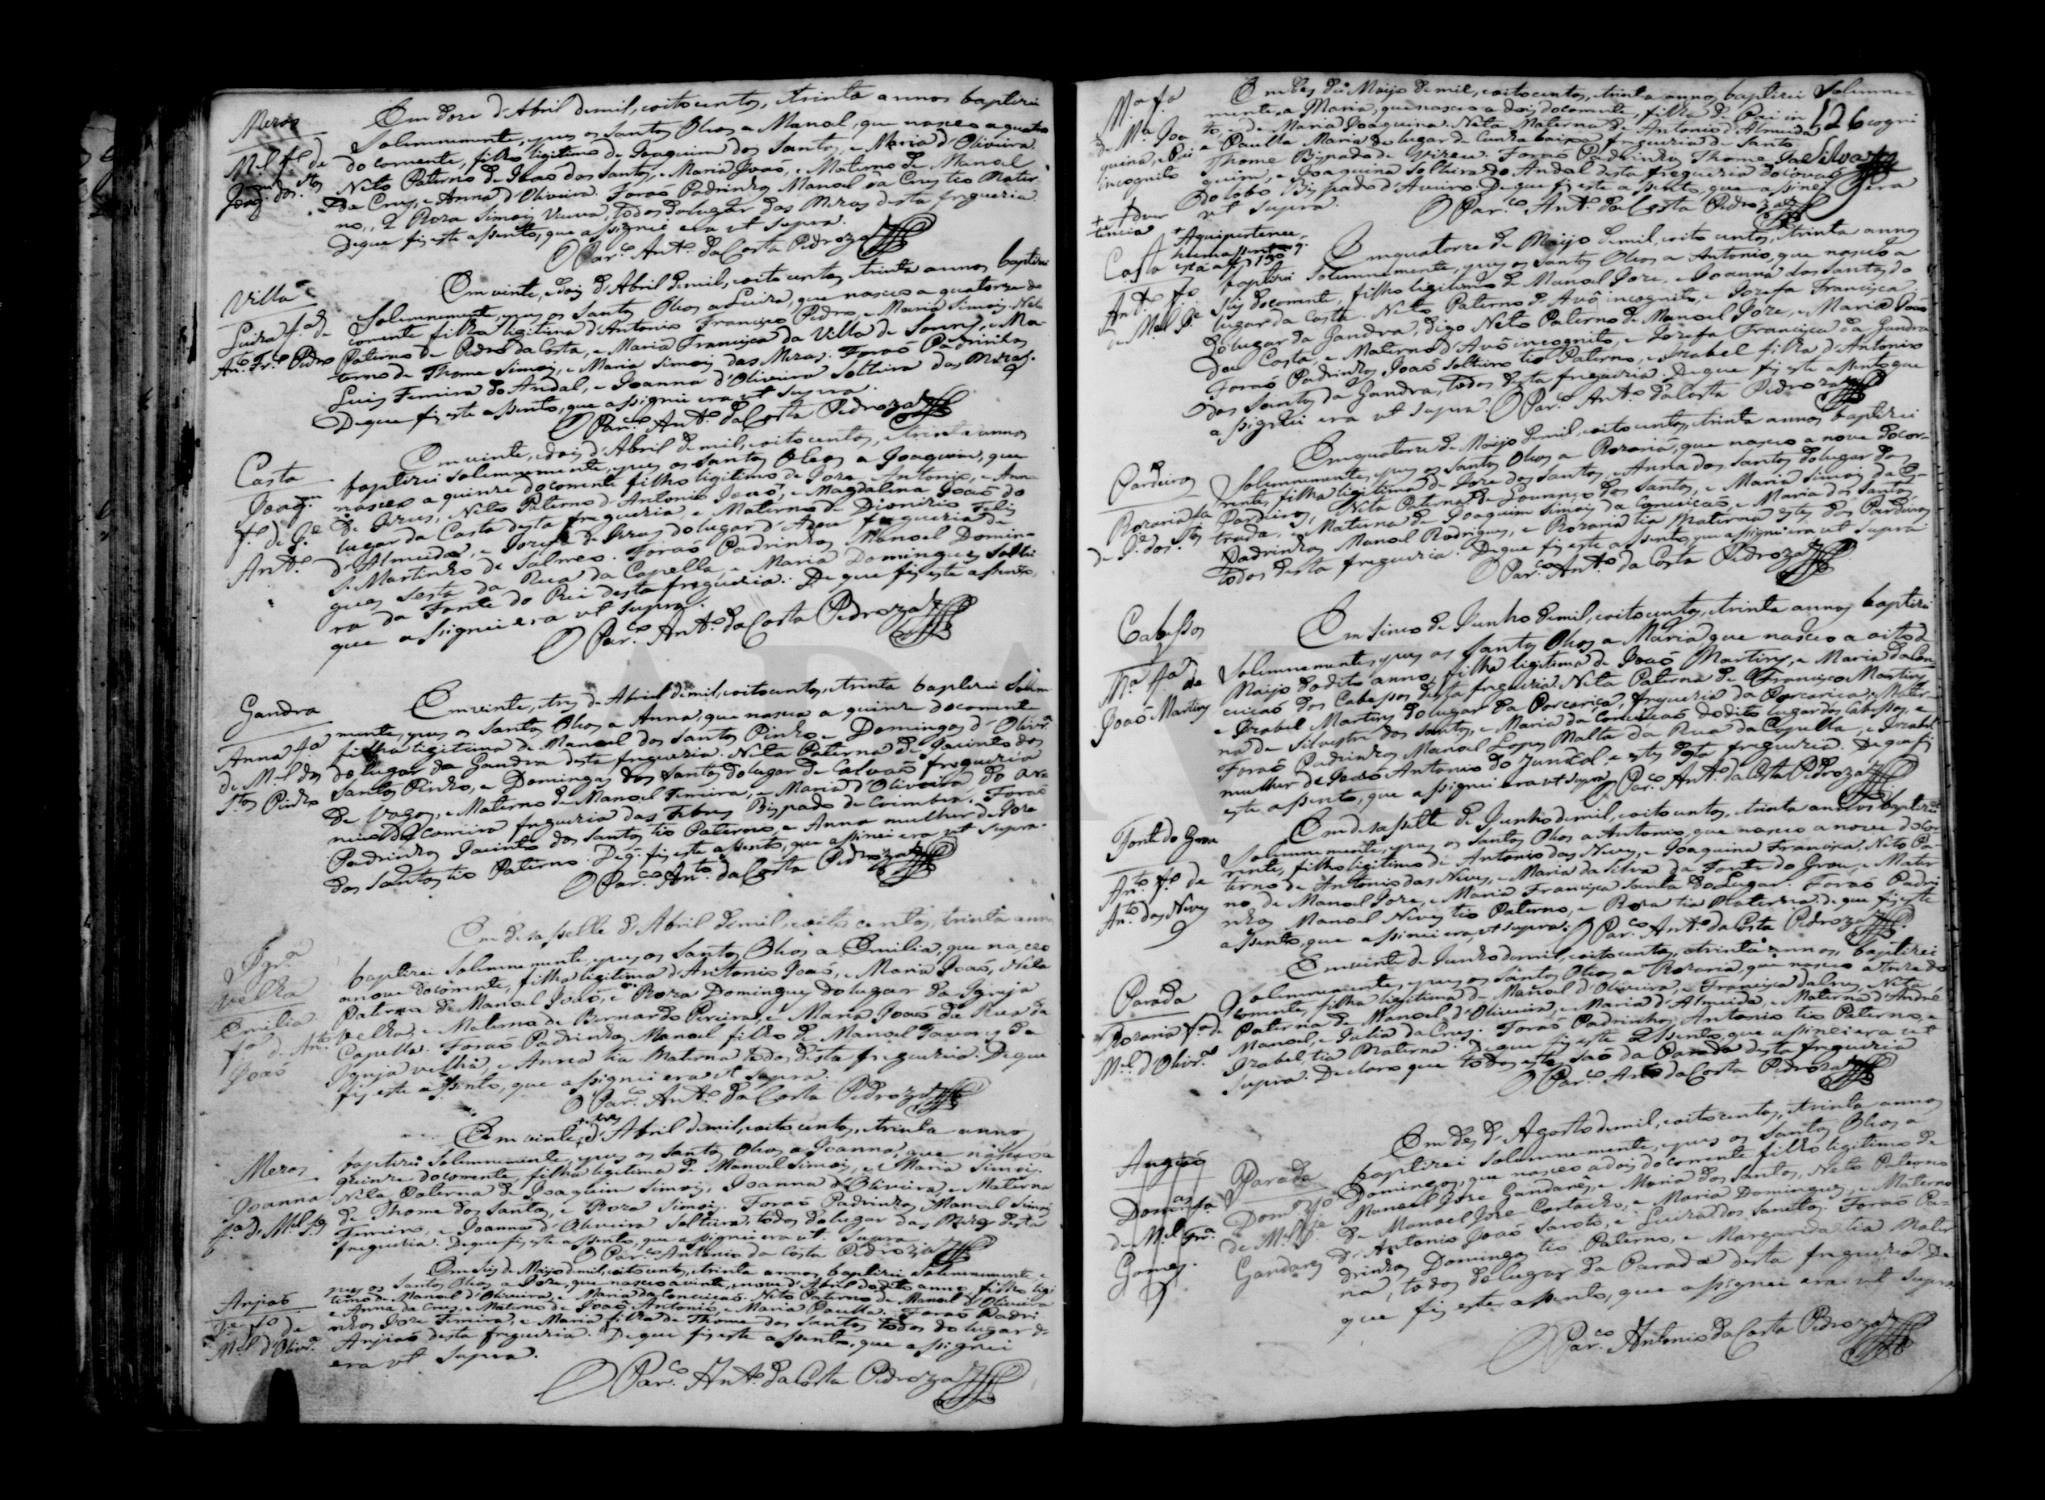 Meros
M.el f.o de
Joaq.m dos S.tos
Em doze d'Abril demil, eoitocentos, etrinta annos baptizei
Solemnemente, epuz os Santos Oleos a Manoel, que nasceo a quatro
do corrente, filho ligitimo de Joaquim dos Santos, e Maria d'Oliveira
Neto Paterno de Joaõ dos Santos, e Maria Joaõ, e Materno de Manoel
da Cruz, e Anna d'Oliveira. Foraõ Padrinhos Manoel da Cruz tio Mater
no, e Roza Simois Viuva, todos dolugar dos Meros desta freguezia.
Deque fiz este assento, que assignei era ut supra.
O Par.co Ant.o daCosta Pedroza
Villa
Luiza f.a de
An.to Fr.co Pedro
Em vinte, edois d'Abril demil, eoitocentos, etrinta annos baptizei
Solemnemente, epuz os Santos Oleos a Luiza, que nasceo a quatorze do
corrente filha ligitima d'Antonio Francisco Pedro, e Maria Simois, Neta
Paterna de Pedro da Costa, e Maria Francisca da Villa de Souza, e Ma-
terna de Thome Simois, e Maria Simois dos Meros. Foraõ Padrinhos
Luis Ferreira do Andal, e Joanna d'Oliveira Solteira dos Meros.
Deque fiz este assento, que assignei era ut supra.
O Par.co Ant.o daCosta Pedroza
Costa
Joaq.m
f.o de J.e
Ant.o
Em vinte, edois d'Abril demil, eoitocentos, etrinta annos
baptizei solemnemente, epuz os Santos Oleos a Joaquim, que
nasceo a quinze docorrente filho ligitimo de Joze Antonio, e Anna
de Jezus, Neto Paterno d'Antonio Joaõ, e Magdalena Joaõ do
lugar da Costa desta freguezia, e Materno de Dionizio Felis
d'Almeida, e Jozefa de Jezus dolugar d'Azeu freguezia de
S. Martinho de Salreo. Foraõ Padrinhos Manoel Domin-
gues Sesta da Rua da Capella, e Maria Domingues Soltei
ra da Fonte do Rei desta freguezia. De que fiz este assento,
que assignei era ut supra.
O Par.co Ant.o daCosta Pedroza
Gandra
Anna f.a
de M.el dos
S.tos Pinho
Em vinte, etres de Abril demil, eoitocentos, etrinta baptizei Solem
mente, epuz os Santos Oleos a Anna, que nasceo a quinze docorrente
filha ligitima de Manoel dos Santos Pinho, e Domingas d'Olivr.a
do lugar da Gandra desta freguezia. Neta Paterna de Jacinto dos
Santos Pinho, e Domingas dos Santos dolugar de Calvaõ freguezia
de Vagos, e Materna de Manoel Ferreira, e Maria d'Oliveira do
freguezia das Febres Bispado de Coimbra. Foraõ
Padrinhos Jacinto dos Santos tio Paterno, e Anna mulher de Joze
dos Santos tio Paterno. Deq. fiz este assento, que assinei era ut supra.
O Par.co Ant.o daCosta Pedroza
Igr.a
Velha
Emilia
f.a d'An.to
Joaõ
Em desassette d'Abril demil, eoito centos, etrinta annos
baptizei Solemnemente, epuz os Santos Oleos a Emilia, que nasceo
anove docorrente, filha ligitima d'Antonio Joaõ, e Maria Joaõ, Neta
Paterna de Manoel Joaõ, e Roza Domingues dolugar da Igreja
Velha, e Materna de Bernardo Pereira, e Maria Joaõ da Rua da
Capella. Foraõ Padrinhos Manoel filho de Manoel Tavares da
Igreja velha, e Anna tia Materna todos desta freguezia. Deque
fiz este assento, que assignei era ut supra.
O Par.co Ant.o da Costa Pedroza
Meros
Joanna
f.a de M.el S.es
Em vinte, e tres d'Abril demil, eoitocentos, etrinta annos
baptizei Solemnemente, epuz os Santos Oleos a Joanna, que nasceo a
quinze docorrente filha ligitima de Manoel Simois, e Maria Simois,
Neta Paterna de Joaquim Simois, e Joanna d'Oliveira, e Materna
de Thome dos Santos, e Roza Simois. Foraõ Padrinhos Manoel Simois
e Joanna d'Oliveira Solteira, todos dolugar dos Meros desta
freguezia. Deque fiz este assento, que assignei era ut supra
O Par.co Antonio da Costa Pedroza
Anjiaõ
J.e f.o de
M.el d'Olivr.a
Em seis de Maijo demil, eoitocentos, etrinta annos baptizei Solemnemente, e
puz os Santos Oleos a Joze, que nasceo avinte, enove d'Abril dodito anno, filho ligi
timo de Manoel d'Oliveira, e Maria da Conceicaõ. Neto Paterno de Manoel d'Oliveira
e Anna da Cruz, e Materno de Joaõ Antonio, e Maria Paulla. Foraõ Padri
nhos Joze Ferreira, e Maria filha de Thome dos Santos todos do lugar d-
Anjiaõ desta freguezia. Deque fiz este assento, que assignei
era ut supra.
O Par.co Ant.o daCosta Pedroza
126
Silva
Mafa
de M.a Joa
quina, e Pai
incognito
Em des de Maijo demil, eoitocentos, etrinta annos baptizei Solemne-
mente, a Maria, que nasceo a dois docorrente, filha de Pai in cogni
to, e de Maria Joaquina. Neta Materna de Antonio d'Almeida
e Paulla Maria do lugar de Cunha baixa freguezia de Santo
Thome Bispado de Vizeu. Foraõ Padrinhos Thome Joa
quim, e Joaquina Solteira do Andal desta freguezia
Bispado d'Aveiro. Deque fiz este assento, que assinei era
ut supra.
O Par.co Ant.o daCosta Pedroza
+ Adver
tencia
+ Aqui pertence
hum assento q.
está a f. 130
Costa
Ant.o f.o
de M.el J.e
Em quatorze de Maijo demil, eoito centos, etrinta annos
baptizei Solemnemente, epuz os Santos Oleos a Antonio, que nasceo a
seis docorrente, filho ligitimo de Manoel Joze, e Joanna dos Santos do
lugar da Costa. Neto Paterno d'Avô incognito, e Jozefa Francisca
dolugar da Gandra, digo Neto Paterno de Manoel Joze, e Maria Joaõ
da Costa, e Materno d'Avô incognito, e Jozefa Francisca da Gandra
Foraõ Padrinhos Joaõ Solteiro tio Paterno, e Izabel filha d'Antonio
dos Santos da Gandra, todos desta freguezia. Deque fiz este assento que
assignei era ut supra. O Par.co Ant.o daCosta Pedroza
Pardeiros
Rozaria f.a
de J.e dos S.tos
Em quatorze de Maijo demil, eoitocentos, etrinta annos baptizei
Solemnemente, epuz os Santos Oleos a Rozaria, que nasceo a nove docor-
rente, filha ligitima de Joze dos Santos, e Anna dos Santos dolugar dos
Pardeiros, Neta Paterna de Lourenço dos Santos, e Maria Simois da Es-
trada, e Materna de Joaquim Simois da Conceicaõ, e Maria dos Santos
Padrinhos Manoel Rodrigues, e Rozaria tia Materna estes dos Pardeiros
todos desta freguezia. Deque fiz este assento, que assignei era ut supra
O Par.co Ant.o da Costa Pedroza
Cabessos
M.a f.a de
Joaõ Martins
Em sinco de Junho demil, eoitocentos, etrinta annos baptizei
Solemnemente, epuz os Santos Oleos a Maria que nasceo a oito d
Maijo dodito anno, filha ligitima de Joaõ Martins, e Maria da Con-
ceicaõ dos Cabessos desta freguezia. Neta Paterna de Francisco Martins
e Izabel Martins dolugar da Porcarica, freguezia da Porcarica, e Mater-
na de Silvestre dos Santos, e Maria da Conceicaõ dodito lugar dos Cabessos, e
Foraõ Padrinhos Manoel Lopes Malta da Rua da Capella, e Izabel
mulher de Joaõ Antonio do Juncal, e estes desta freguezia. Deque fiz
este assento, que assignei era ut supra. O Par.co Ant.o da Costa Pedroza
Fonte do Grou
An.to f.o de
An.to das Neves
Em desassette de Junho demil, eoitocentos, etrinta annos baptizei
Solemnemente, epuz os Santos Oleos a Antonio, que nasceo a nove docor
rente, filho ligitimo de Antonio das Neves, e Joaquina Francisca, Neto Pa-
terno de Antonio das Neves, e Maria da Silva da Fonte do Grou, e Mater
no de Manoel Joze, e Maria Francisca Santa do Lugar. Foraõ Padri
nhos Manoel Neves tio Paterno, e Roza tia Materna. de que fiz este
assento, que assinei era ut supra. O Par.co Ant.o daCosta Pedroza
Parada
Rozaria f.a de
M.el d'Olivr.a
Em vinte de Junho demil, eoitocentos, etrinta annos, baptizei
Solemnemente, epuz os Santos Oleos a Rozaria, que nasceo a treze do
corrente, filha ligitima de Manoel d'Oliveira, e Francisca da Cruz, Neta
Paterna de Manoel d'Oliveira, e Maria d'Almeida, e Materna d'André
Manoel, e Julia da Cruz. Foraõ Padrinhos Antonio tio Paterno, e
Izabel tia Materna. Deque fiz este assento, que assinei era ut
supra. Declaro que todos estes saõ da Parada desta freguezia
O Par.co Ant.o da Costa Pedroza
Angiaõ
Dom.as f.a
de M.el Fr.a
Gomes.
Parada
Dom.os f.o
de M.el J.e
Gandarês
Em des d'Agosto demil, eoitocentos, etrinta annos
baptizei Solemnemente, epuz os Santos Oleos a
Domingos, que nasceo a dois docorrente filho ligitimo de
Manoel Joze Gandarês, e Maria dos Santos, Neto Paterno
de Manoel Joze Cartacho, e Maria Domingues, e Materno
d'Antonio Joaõ Saroto, e Luiza dos Santos. Foraõ Pa-
drinhos Domingos tio Paterno, e Margarida tia Mater
na, todos do lugar da Parada desta freguezia. De
que fiz este assento, que assignei era ut supra
O Par.co Antonio da Costa Pedroza